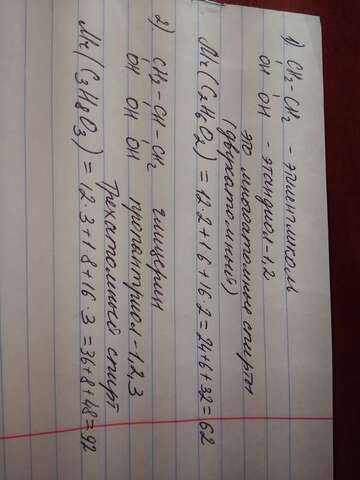 1) CH2 - CH2 - этиленгликоль
OH OH - этандиол-1,2
это многоатомные спирты
(двухатомный)
Mr(C2H6O2) = 12·2+1·6+16·2=24+6+32=62
2) CH2 - CH - CH2 глицерин
OH OH OH пропантриол-1,2,3
Трехатомный спирт
Mr(C3H8O3) = 12·3+1·8+16·3=36+8+48=92